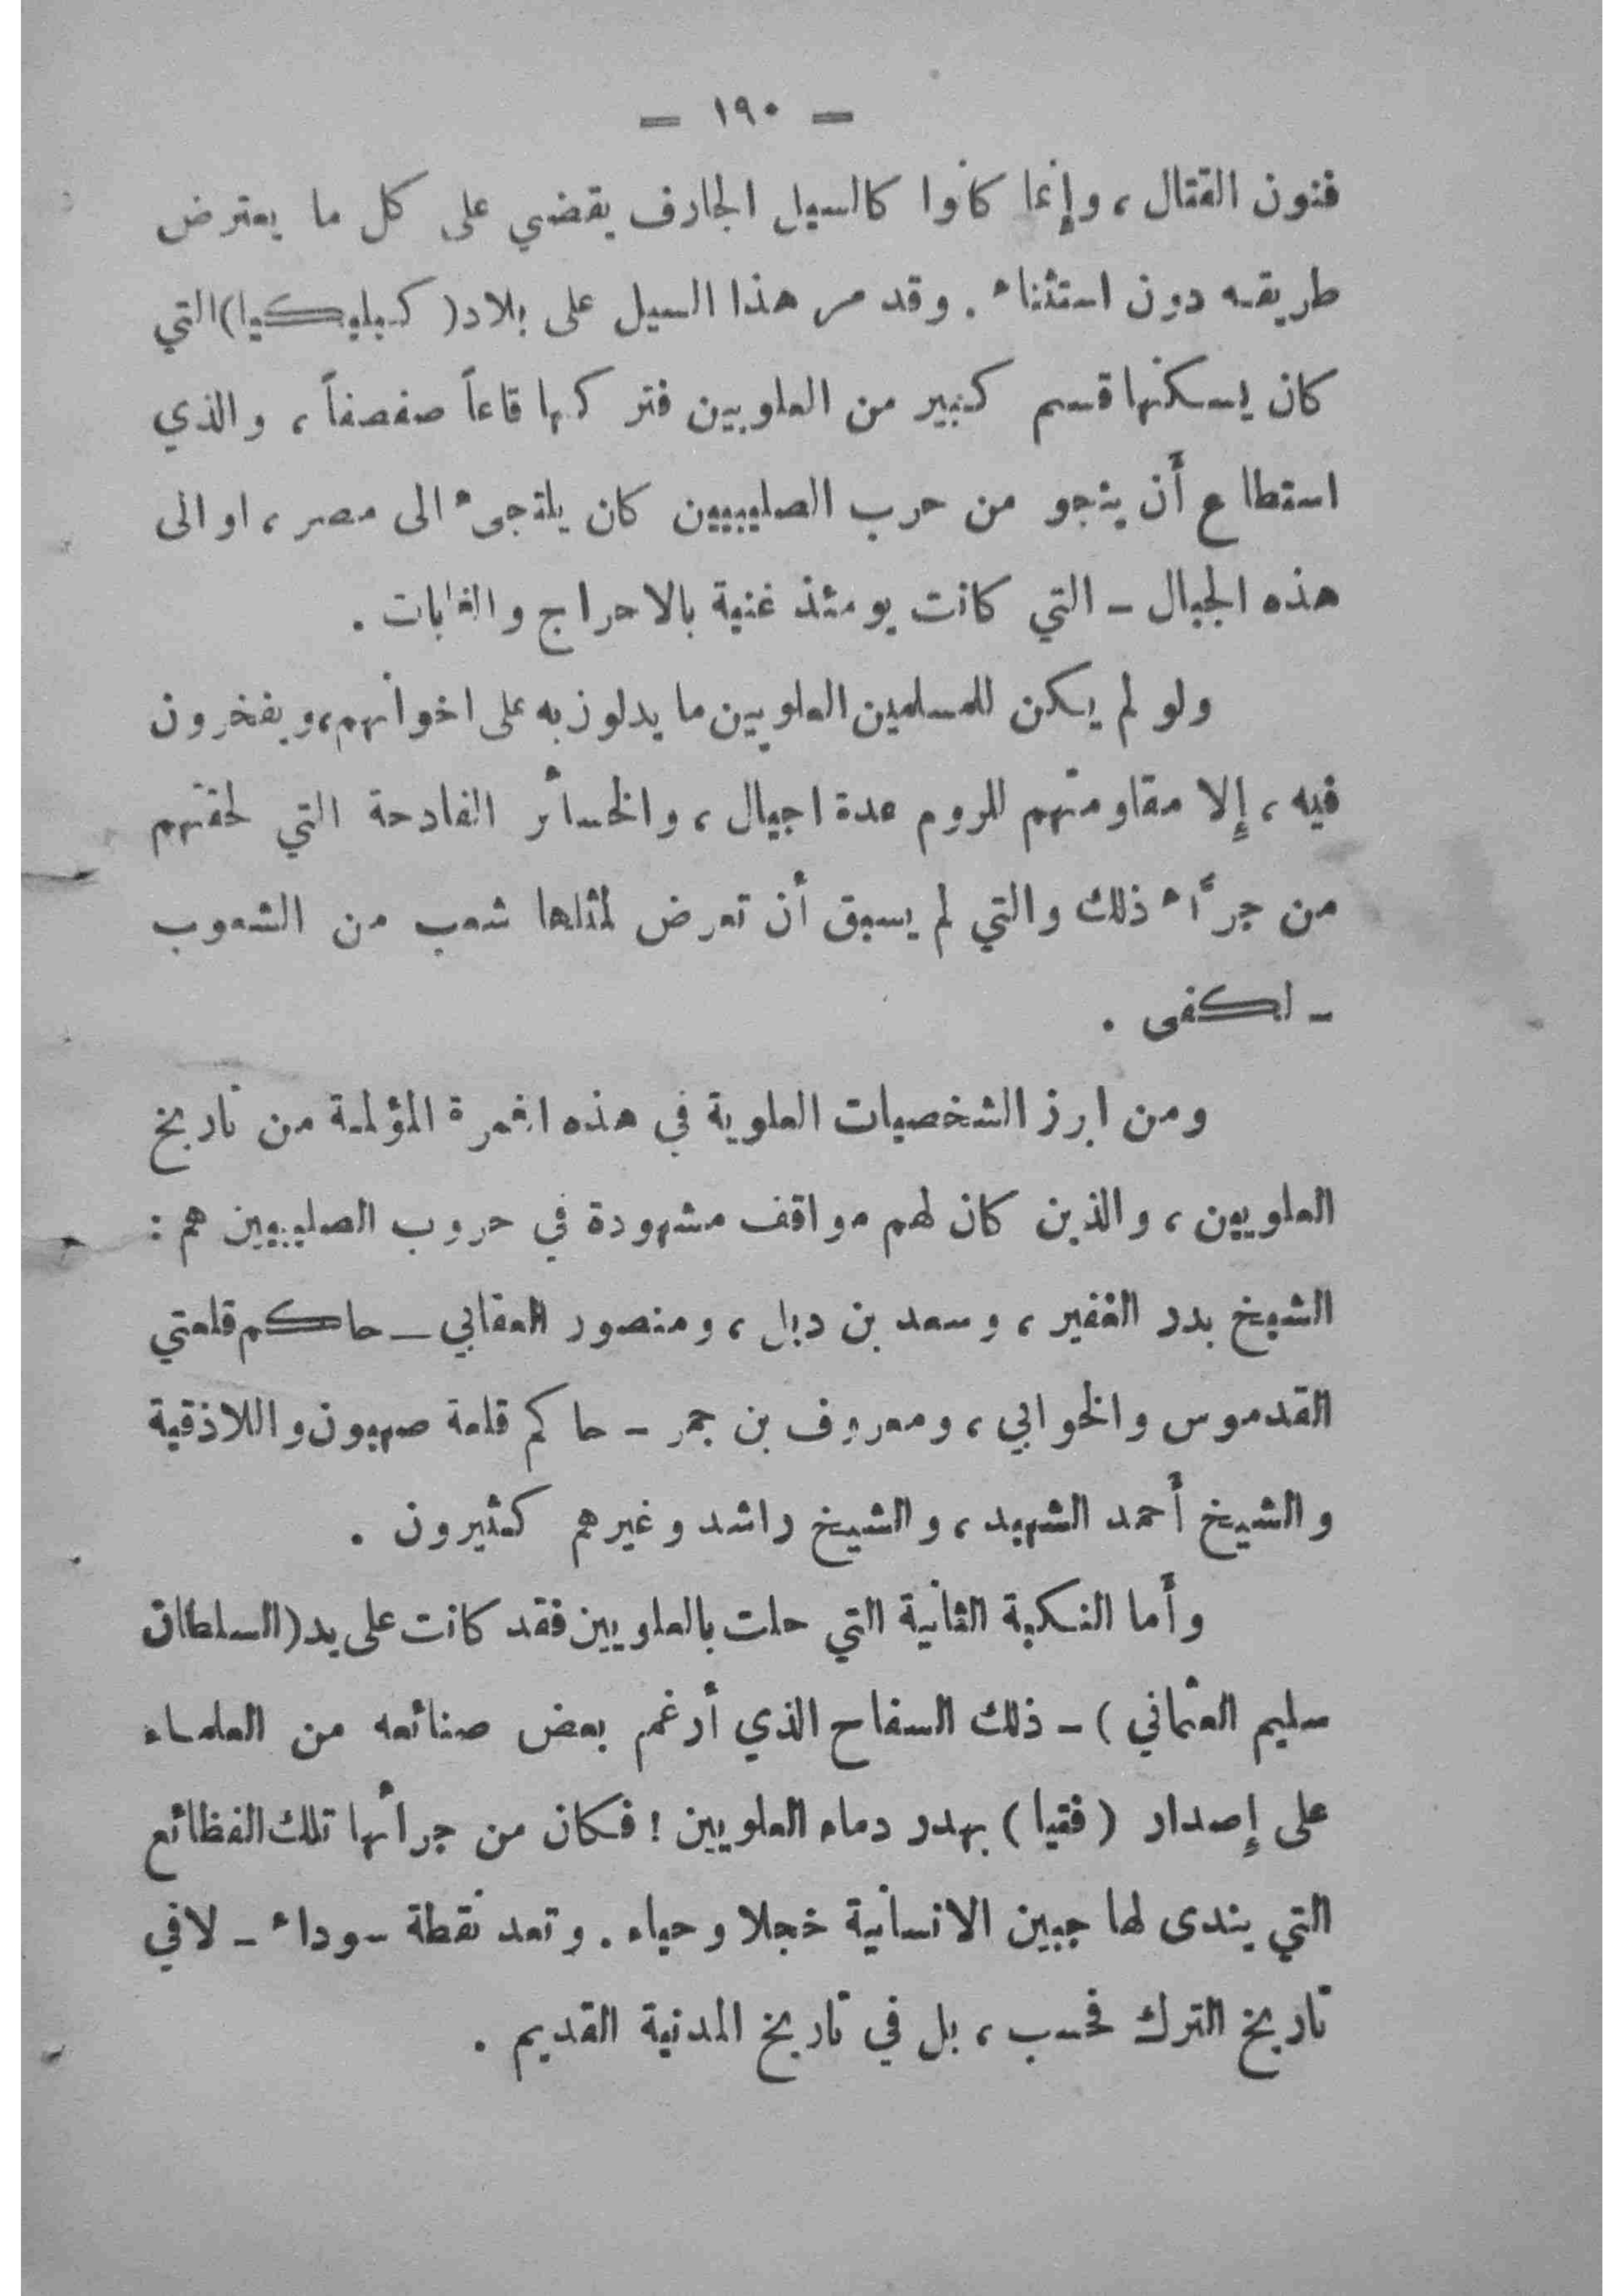 — ١٩٠ —
فنون القتال ، وإنما كانوا كالسيل الجارف يقضي على كل ما يعترض
طريقه دون استثناء . وقد مر هذا السيل على بلاد ( كيليكيا ) التي
كان يسكنها قسم كبير من العلويين فتركها قاعاً صفصفاً ، والذي
استطاع أن ينجو من حرب الصليبيون كان يلتجىء الى مصر ، او الى
هذه الجبال – التي كانت يومئذ غنية بالاحراج والغابات .
ولو لم يكن للمسلمين العلويين ما يدلون به على اخوانهم ، ويفخرون
فيه ، إلا مقاومتهم للروم عدة اجيال ، والخسائر الفادحة التي لحقتهم
من جرَّاء ذلك والتي لم يسبق أن تعرض لمثلها شعب من الشعوب
– لكفى .
ومن ابرز الشخصيات العلوية في هذه الغمرة المؤلمة من تاريخ
العلويين ، والذين كان لهم مواقف مشهودة في حروب الصليبيين هم :
الشيخ بدر الغفير ، وسعد بن دبل ، ومنصور العقابي – حاكم قلعتي
القدموس والخوابي ، ومعروف بن جمر – حاكم قلعة صهيون واللاذقية
والشيخ أحمد الشهيد ، والشيخ راشد وغيرهم كثيرون .
وأما النكبة الثانية التي حلت بالعلويين فقد كانت على يد ( السلطان
سليم العثماني ) – ذلك السفاح الذي أرغم بعض صنائعه من العلماء
على إصدار ( فتيا ) بهدر دماء العلويين ! فكان من جرائها تلك الفظائع
التي يندى لها جبين الانسانية خجلا وحياء . وتعد نقطة سوداء – لا في
تاريخ الترك فحسب ، بل في تاريخ المدنية القديم .